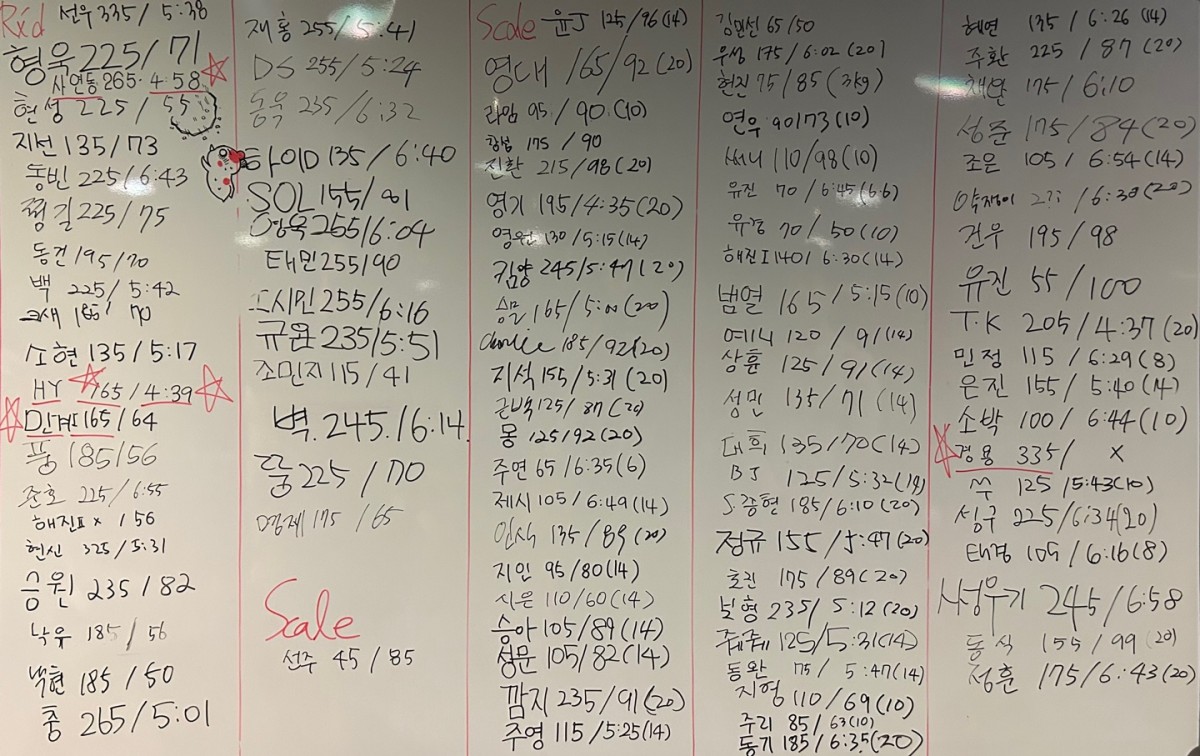 Rxd 선우 335 / 5:38
형욱 225 / 71
사연동 265 · 4 58
현성 225 / 55
지선 135 / 73
동빈 225 / 6:43
쩡길 225 / 75
동건 195 / 70
백 225 / 5:42
185 70
소현 135 / 5:17
HY 165 / 4:39
민경I 165 / 64
품 185 / 56
준호 225 / 6:55
해진Ⅱ x / 56
현신 325 / 5:31
승원 235 / 82
낙유 185 / 56
백현 185 / 50
충 265 / 5:01
재홍 255 / 5:41
DS 255 / 5:24
동욱 235 / 6:32
타이D 135 / 6:40
SOL 155 / 81
영욱 255 / 6:04
태민 255 / 90
시민 255 / 6:16
규윤 235 / 5:51
조민지 115 / 41
벽. 245. / 6:14.
쭝 225 / 70
명제 175 / 65
Scale
선주 45 / 85
Scale 윤J 125 / 96 (14)
영대 165 / 92 (20)
라임 95 / 90 (10)
175 / 90
진환 215 / 98 (20)
영기 195 / 4:35 (20)
영원 130 / 5:15 (14)
킴양 245 / 5:47 (20)
승문 165 / 5:00 (20)
185 / 92 (20)
지석 155 / 5:31 (20)
근백 125 / 87 (20)
몽 125 / 92 (20)
주연 65 / 6:35 (6)
제시 105 / 6:49 (14)
인식 135 / 89 (20)
지인 95 / 80 (14)
시은 110 / 60 (14)
승아 105 / 89 (14)
성문 105 / 82 (14)
깜지 235 / 91 (20)
주영 115 / 5:25 (14)
김민선 65 / 50
우성 175 / 6:02 (20)
현진 75 / 85 (3kg)
연우 90 / 73 (10)
써니 110 / 98 (10)
유진 70 / 6:45 (6.6)
유경 70 / 50 (10)
해진I 140 / 6:30 (14)
범열 165 / 5:15 (10)
여니 120 / 91 (14)
상훈 125 / 91 (14)
성민 135 / 71 (14)
대희 135 / 70 (14)
BJ 125 / 5:32 (14)
S.종현 185 / 6:10 (20)
정규 155 / 5:47 (20)
효진 175 / 89 (20)
보형 235 / 5:12 (20)
쥬쥬 125 / 5:31 (14)
동완 75 / 5:47 (14)
지형 110 / 69 (10)
주리 85 / 63 (10)
동기 185 / 6:35 (20)
혜연 135 / 6:26 (14)
주환 225 / 87 (20)
채완 175 / 6:10
성준 175 / 84 (20)
조은 105 / 6:54 (14)
약쟁이 / 6:30 (20)
건우 195 / 98
유진 55 / 100
T.K 205 / 4:37 (20)
민정 115 / 6:29 (8)
은진 155 / 5:40 (14)
소박 100 / 6:44 (10)
경용 335 / x
쑤 125 / 5:43 (10)
성구 225 / 6:34 (20)
태경 105 / 6:16 (8)
서성우기 245 / 6:58
동식 155 / 99 (20)
정훈 175 / 6:43 (20)